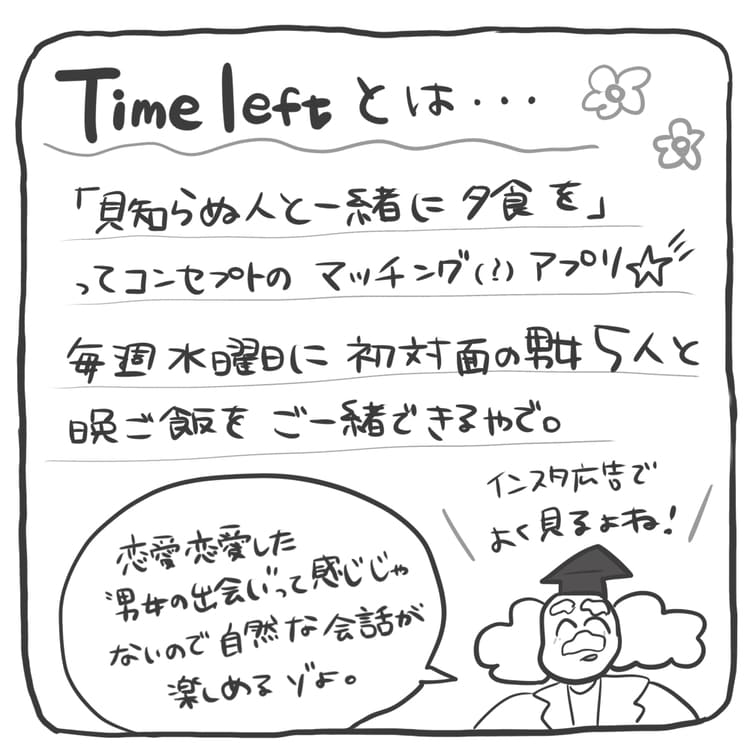 Time leftとは・・・
「見知らぬ人と一緒に夕食を」
ってコンセプトの マッチング(?)アプリ☆
毎週水曜日に初対面の男女5人と
晩ご飯をご一緒できるやで。
インスタ広告で
よく見るよね!
恋愛恋愛した
男女の出会いって感じじゃ
ないので自然な会話が
楽しめるゾよ。